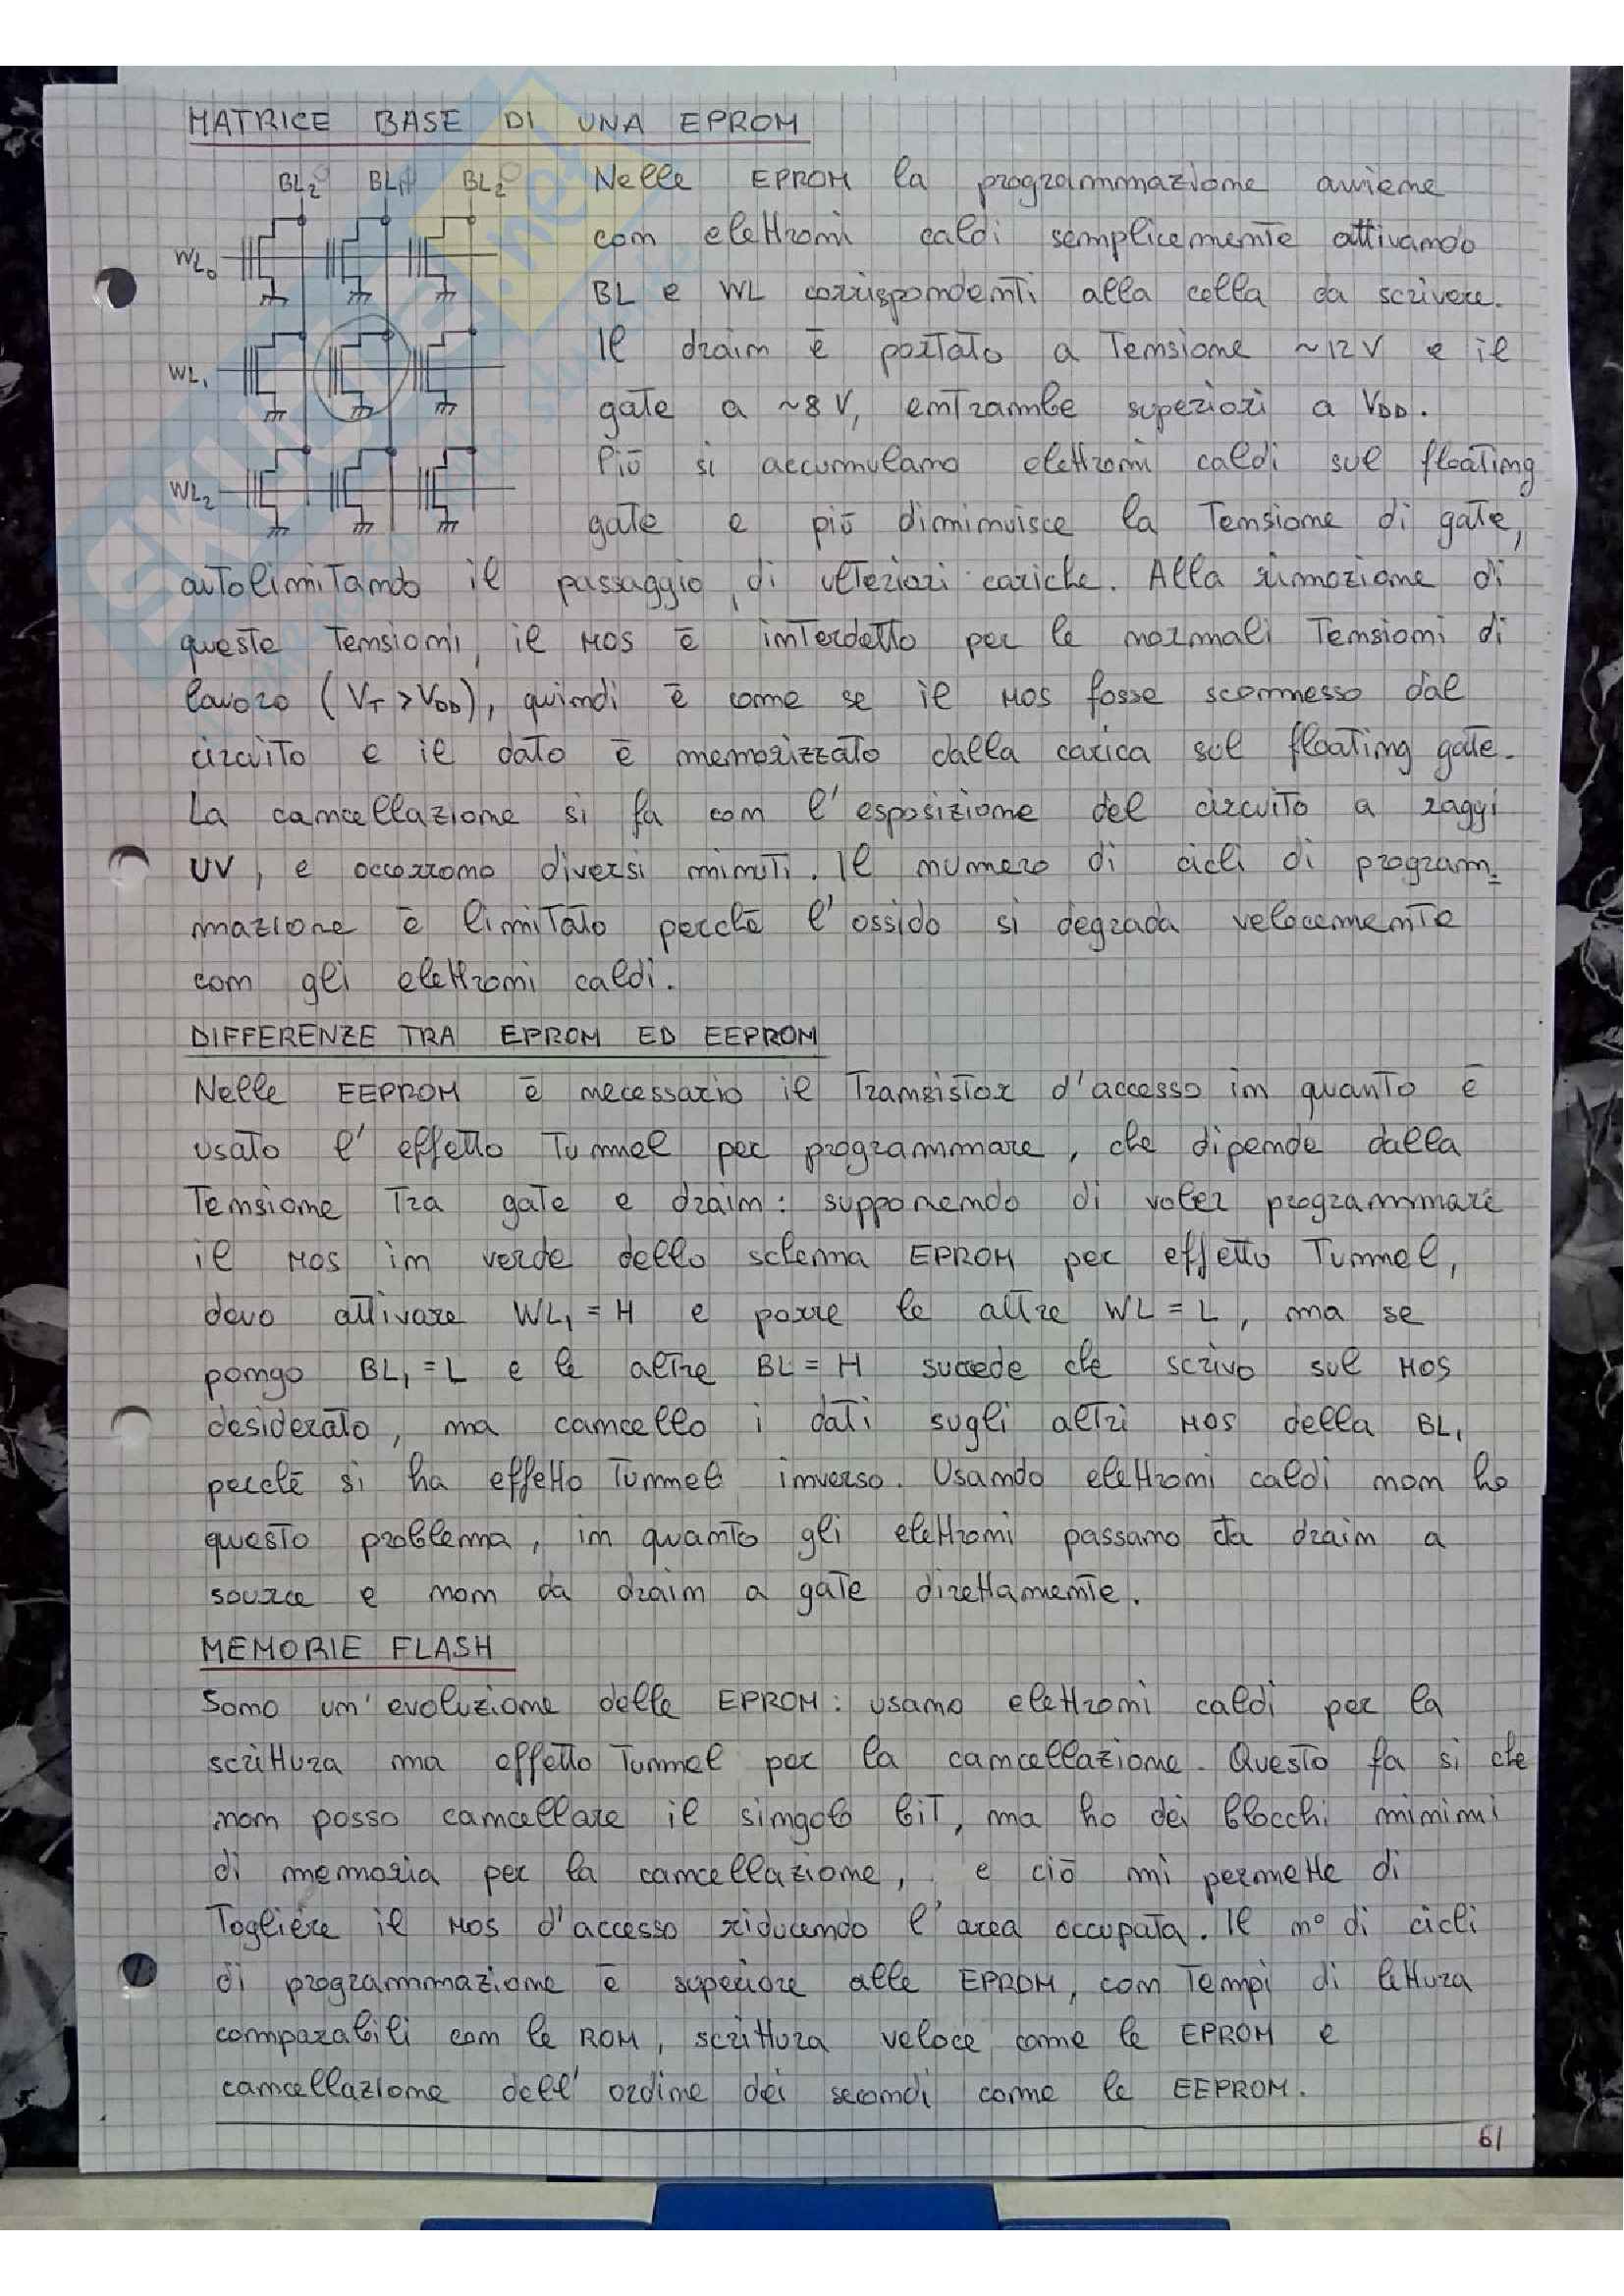 MATRICE BASE DI UNA EPROM
BL2 BL1 BL2
Nelle EPROM la programmazione avviene
con elettroni caldi semplicemente attivando
WL0
BL e WL corrispondenti alla cella da scrivere.
Il drain è portato a tensione ~12V e il
WL1
gate a ~8V, entrambe superiori a VDD.
Più si accumulano elettroni caldi sul floating
WL2
gate e più diminuisce la tensione di gate,
autolimitando il passaggio di ulteriori cariche. Alla rimozione di
queste tensioni, il MOS è interdetto per le normali tensioni di
lavoro (VT > VDD), quindi è come se il MOS fosse sconnesso dal
circuito e il dato è memorizzato dalla carica sul floating gate.
La cancellazione si fa con l'esposizione del circuito a raggi
UV, e occorrono diversi minuti. Il numero di cicli di program=
mazione è limitato perchè l'ossido si degrada velocemente
con gli elettroni caldi.
DIFFERENZE TRA EPROM ED EEPROM
Nelle EEPROM è necessario il transistor d'accesso in quanto è
usato l'effetto tunnel per programmare, che dipende dalla
tensione tra gate e drain: supponendo di voler programmare
il MOS in verde dello schema EPROM per effetto tunnel,
devo attivare WL1 = H e porre le altre WL = L, ma se
pongo BL1 = L e le altre BL = H succede che scrivo sul MOS
desiderato, ma cancello i dati sugli altri MOS della BL1
perchè si ha effetto tunnel inverso. Usando elettroni caldi non ho
questo problema, in quanto gli elettroni passano da drain a
source e non da drain a gate direttamente.
MEMORIE FLASH
Sono un'evoluzione delle EPROM: usano elettroni caldi per la
scrittura ma effetto tunnel per la cancellazione. Questo fa si che
non posso cancellare il singolo bit, ma ho dei blocchi minimi
di memoria per la cancellazione, e ciò mi permette di
togliere il MOS d'accesso riducendo l'area occupata. Il n° di cicli
di programmazione è superiore alle EPROM, con tempi di lettura
comparabili con le ROM, scrittura veloce come le EPROM e
cancellazione dell'ordine dei secondi come le EEPROM.
61